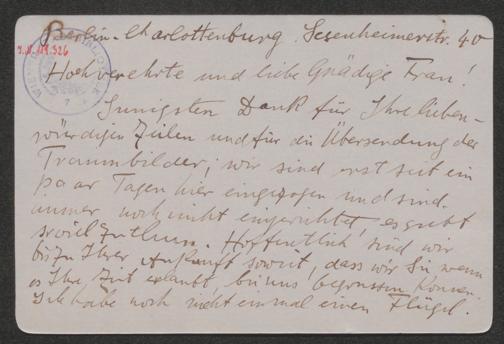 Berlin-Charlottenburg Sesenheimerstr. 40
I.N. 149.526
Hochverehrte und liebe Gnädige Frau!
Innigsten Dank für Ihre liebens-
würdigen Zeilen und für die Übersendung der
Traumbilder; wir sind erst seit ein
paar Tagen hier eingezogen und sind
immer noch nicht eingerichtet, es giebt
soviel zu thun. Hoffentlich sind wir
bis zu Ihrer Ankunft soweit, dass wir Sie wenn
es Ihre Zeit erlaubt, bei uns begrüssen können.
Ich habe noch nicht einmal einen Flügel.